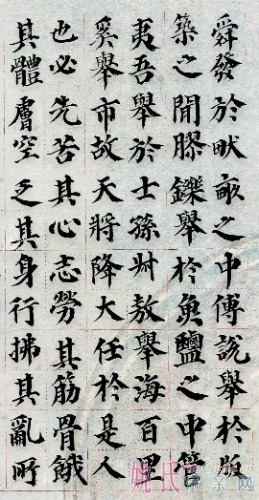 舜發於畎畝之中傅說舉於版
築之間膠鑠舉於魚鹽之中管
夷吾舉於士孫叔敖舉海百里
奚舉市故天將降大任於是人
也必先苦其心志勞其筋骨餓
其體膚空乏其身行拂其亂所
姚氏